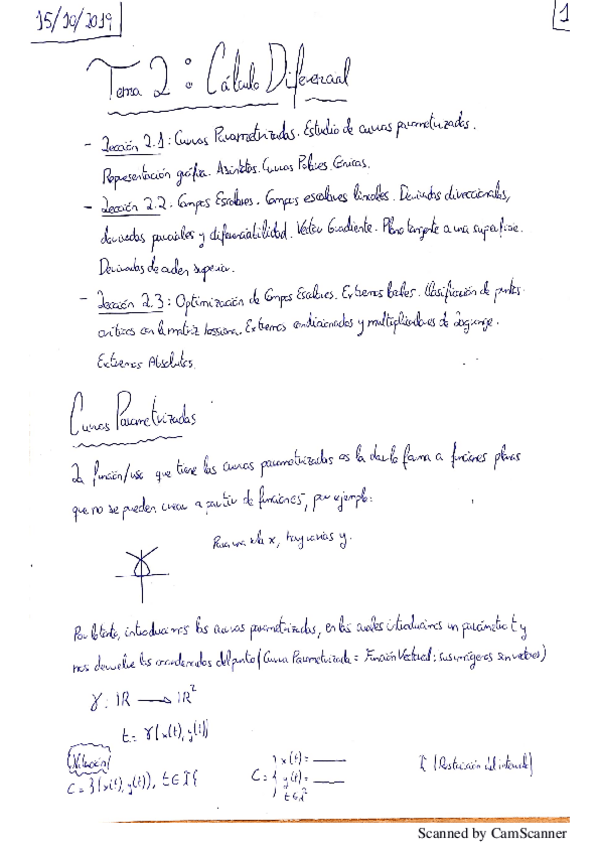 15/10/2019
1
Tema 2: Cálculo Diferencial
- Lección 2.1: Curvas Parametrizadas. Estudio de curvas parametrizadas.
Representación gráfica. Asíntotas. Curvas Polares. Cónicas.
- Lección 2.2. Campos Escalares. Campos escalares lineales. Derivadas direccionales,
derivadas parciales y diferenciabilidad. Vector Gradiente. Plano tangente a una superficie.
Derivadas de orden superior.
- Lección 2.3: Optimización de Campos Escalares. Extremos locales. Clasificación de puntos
críticos con la matriz hessiana. Extremos condicionados y multiplicadores de Lagrange.
Extremos Absolutos.
Curvas Parametrizadas
La función/uso que tiene las curvas parametrizadas es la de darle forma a funciones planas
que no se pueden crear a partir de funciones, por ejemplo:
Para una sola x, hay varias y.
Por lo tanto, introducimos las curvas parametrizadas, en las cuales introducimos un parámetro t y
nos devuelve las coordenadas del punto (Curva Parametrizada = Función Vectorial; sus imágenes son vectores)
γ: ℝ → ℝ²
t = γ(x(t), y(t))
Notación
C = {(x(t), y(t)), t ∈ I}
C = { x(t) =
y(t) =
t ∈ I
I (Restricción del intervalo)
Scanned by CamScanner